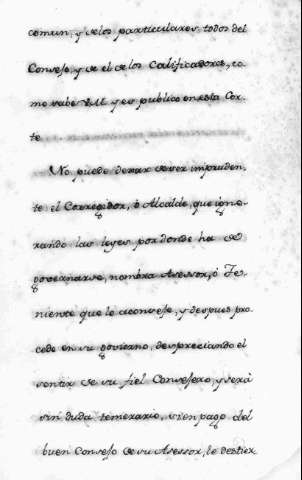 comun, y de los particulares, todos del
Consejo, y de el de los Calificadores, co-
mo sabe V.M. y es publico en esta Cor-
te.
No puede dexar de ser impruden-
te el Corregidor, ò Alcalde, que igno-
rando las leyes por donde ha de
governarse, nombra Asessor, ò Te-
niente que le aconseje, y despues pro-
cede en su govierno, despreciando el
sentir de su fiel Consejero, y serà
sin duda temerario, si en pago del
buen Consejo de su Asessor, le destier-